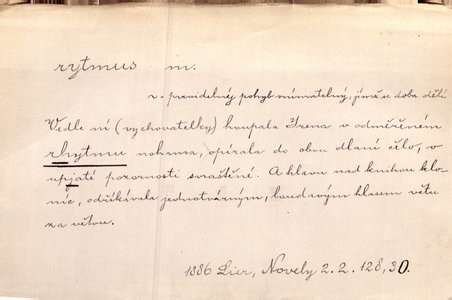 rytmus m.
r. pravidelný pohyb vnímatelný, jímž se doba dělí
Vedle ní (vychovatelky) houpala Irena v odměřeném
rhytmu nohama, opírala do obou dlaní čelo, v
upjaté pozornosti svraštěné. A hlavu nad knihou klo-
níc, odříkávala jednotvárným, loudavým hlasem větu
za větou.
1886 Lier, Novely 2.2. 128,30.